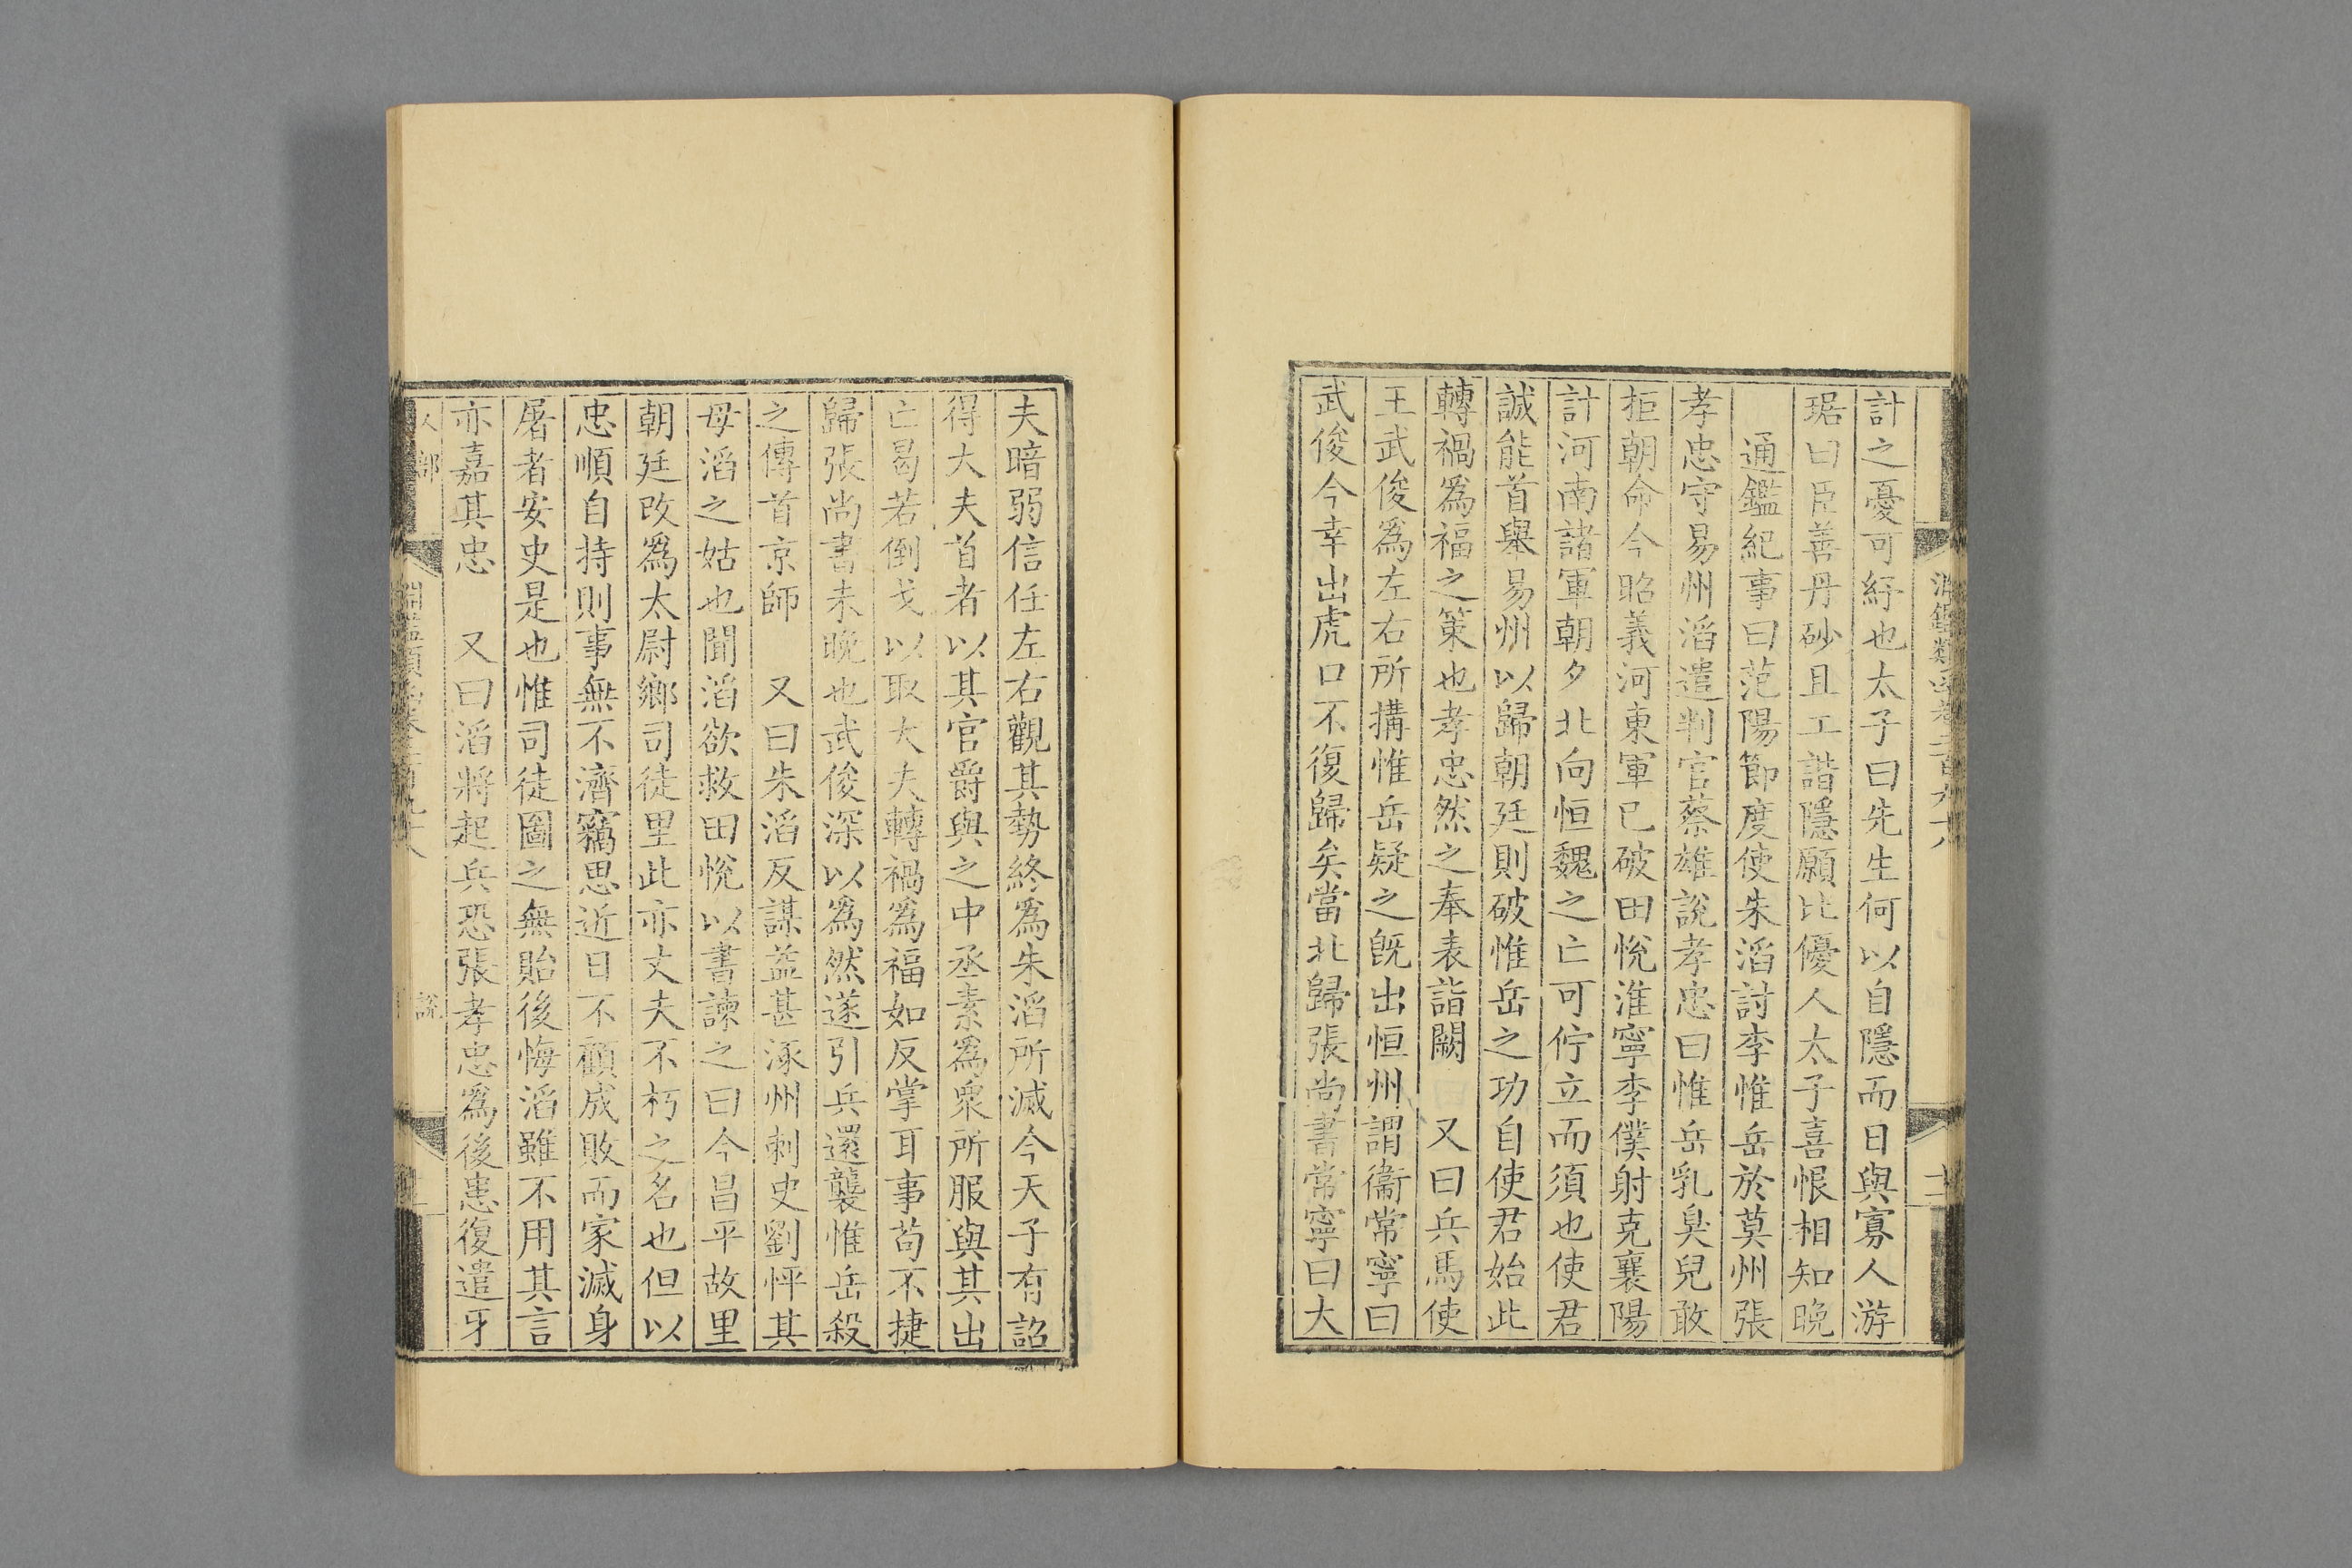 計之憂可紓也太子曰先生何以自隱而日與寡人游
琚曰臣善丹砂且工諧隱願比優人太子喜恨相知晚
通鑑紀事曰范陽節度使朱滔討李惟岳於莫州張
孝忠守易州滔遣判官蔡雄說孝忠曰惟岳乳臭兒敢
拒朝命今昭義河東軍已破田悅淮寧李僕射克襄陽
計河南諸軍朝夕北向恒魏之亡可佇立而須也使君
誠能首舉易州以歸朝廷則破惟岳之功自使君始此
轉禍爲福之策也孝忠然之奉表詣闕 又曰兵馬使
王武俊爲左右所搆惟岳疑之旣出恒州謂衞常寧曰
武俊今幸出虎口不復歸矣當北歸張尚書常寧曰大
夫暗弱信任左右觀其勢終爲朱滔所滅今天子有詔
得大夫首者以其官爵與之中丞素爲衆所服與其出
亡曷若倒戈以取大夫轉禍爲福如反掌耳事苟不捷
歸張尚書未晚也武俊深以爲然遂引兵還襲惟岳殺
之傳首京師 又曰朱滔反謀益甚涿州刺史劉怦其
母滔之姑也聞滔欲救田悅以書諫之曰今昌平故里
朝廷改爲太尉鄉司徒里此亦丈夫不朽之名也但以
忠順自持則事無不濟竊思近日不顧成敗而家滅身
屠者安史是也惟司徒圖之無貽後悔滔雖不用其言
亦嘉其忠 又曰滔將起兵恐張孝忠爲後患復遣牙
人部 說